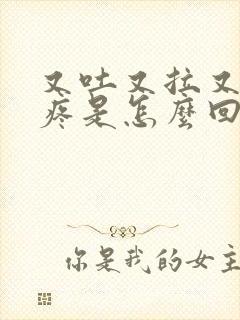 又吐又拉又
疼是怎麼回
你是我的女主